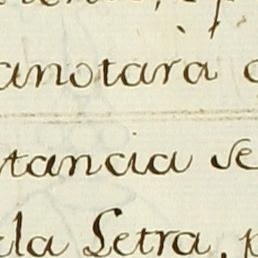 anotarà
tancia se
la Letra,